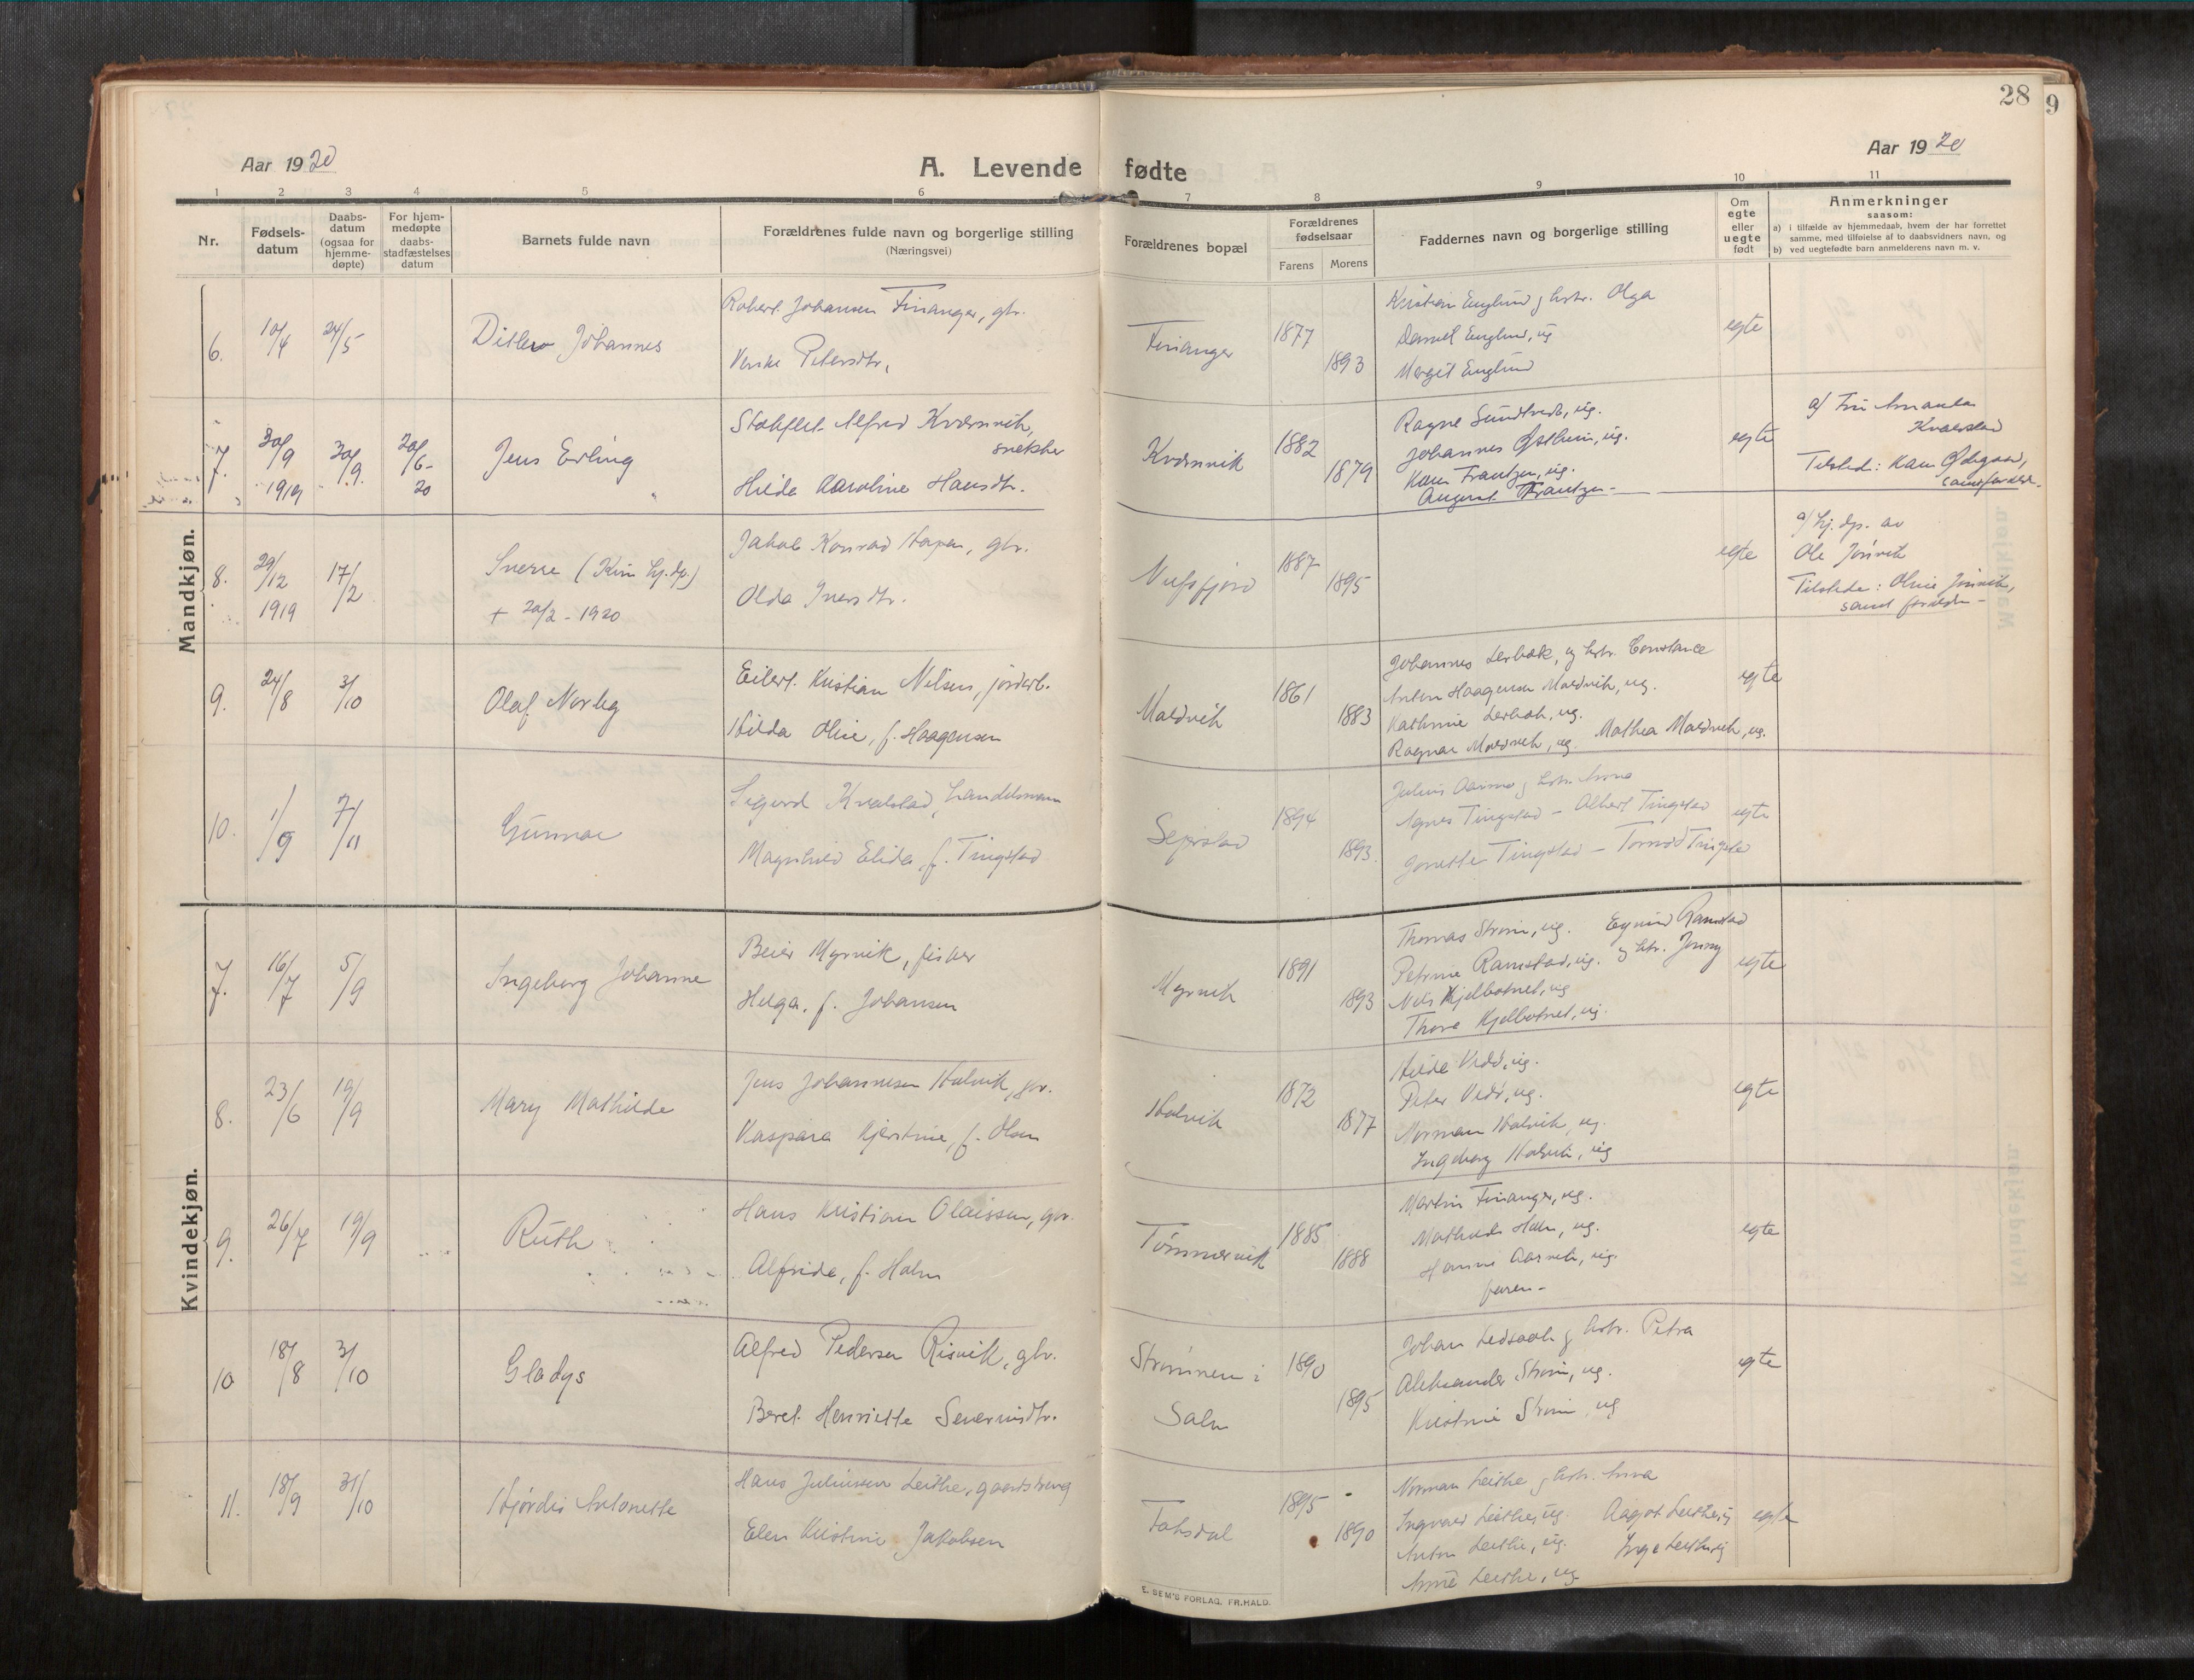 28
9
Aar 1920
A. Levende fødte
Aar 1920
1 2 3 4 5 6 7 8 9 10 11
Nr.
Fødsels-
datum
Daabs-
datum
(ogsaa for
hjemme-
døpte)
For hjem-
medøpte
daabs-
stadfæstelses
datum
Barnets fulde navn
Forældrenes fulde navn og borgerlige stilling
(Næringsvei)
Forældrenes bopæl
Forældrenes
fødselsaar
Farens Morens
Faddernes navn og borgerlige stilling
Om
egte
eller
uegte
født
Anmerkninger
saasom:
a) i tilfælde av hjemmedaab, hvem der har forrettet
samme, med tilføielse af to daabsvidners navn, og
b) ved uegtefødte barn anmelderens navn m. v.
Mandkjøn.
6. 10/4 24/5 Ditlev Johannes
Robert Johansen Finanger, gbr.
Petersdtr,
Finanger 1877 1893
Kristian Englund og hstr. Olga
Daniel Englund, ug
Margit Englund
egte
7. 30/9 1919 30/9 20/6-20 Jens Erling
Alfred Kvernvik,
snekker
Hilda Karoline Hansdtr.
Kvernvik 1882 1879
Ragne Sundtvedt, ug.
Johannes Østhein, ug.
Karen Frantzen, ug.
August Frantzen
egte
a/ Fru Amanda
Kvalstad
Tilsted: Kam Ødegaard,
samt foreldr.
8. 29/12 1919 17/2 Sverre (Kun hj.dp.)
+ 20/2 - 1920
Jakob Konrad Hopen, gbr.
Olda Iversdtr.
Nufsfjord 1887 1895
egte
a/ hj. dp. av
Ole Jørvik
Tilstede: Oline Jørvik,
samt foreldr-
9. 24/8 3/10 Olaf Norleg
Eilert Kristian Nilsen, jordarb.
Hilda Olise, f. Haagensen
Malvik 1861 1883
Johannes Lerbak, og hstr. Constance
Anton Haagensen Malvik, ug.
Kathrine Lerbak, ug.
Ragnar Malvik, ug. Mathea Malvik, ug.
egte
10. 1/9 7/11 Gunnar
Sigurd Kvalstad, handelsmann
Magnhild Elida f. Tingstad
Sejrstad 1894 1893.
Julius og hstr. Anna
Agnes Tingstad - Albert Tingstad
Jonette Tingstad - Tormod Tingstad
egte
Kvindekjøn.
7. 16/7 5/9 Ingeborg Johanne
Beier Myrvik, fisker
Helga, f. Johansen
Myrvik 1891 1893
Thomas Strøm, ug. Eyvind Ramstad
Petrine Ramstad, ug. og hstr. Jenny
Nils Kjelbotnet, ug
Thora Kjelbotnet, ug.
egte
8. 23/6 19/9 Mary Mathilde
Jens Johannesen Halvik, gbr.
Kaspara Kjerstine, f. Olsen
Halvik 1872 1877
Hilda Vedø, ug.
Peter Vedø, ug.
Norman Halvik, ug.
Ingeborg Halvik, ug
egte
9. 26/7 19/9 Ruth
Hans Kristian Olaissen, gbr.
Alfrida, f. Holm
Tømmervik 1885 1888
Martin Finanger, ug.
Mathilde Holm, ug.
Hanna Aarvik, ug.
faren-
egte
10 18/8 3/10 Gladys
Alfred Pedersen Risvik, gbr.
Beret Henriette Severinsdtr.
Strømmen i
Salen
1890 1895
Johan Ledsaak og hstr. Petra
Aleksander Strøm, ug.
Kristine Strøm, ug
egte
11. 18/9 31/10 Hjørdis Antonette
Hans Juliussen Leithe, gaardsdreng
Elen Kristine Jakobsen
Faksdal 1895 1890
Norman Leithe og hstr. Anna
Ingvald Leithe, ug. Aagot Leithe, ug
Anton Leithe, ug. Inga Leithe, ug
Anne Leithe, ug
egte
E. SEM'S FORLAG. FR.HALD.